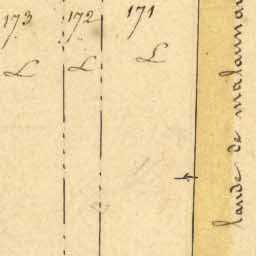 173 172 171
L L L
lande de